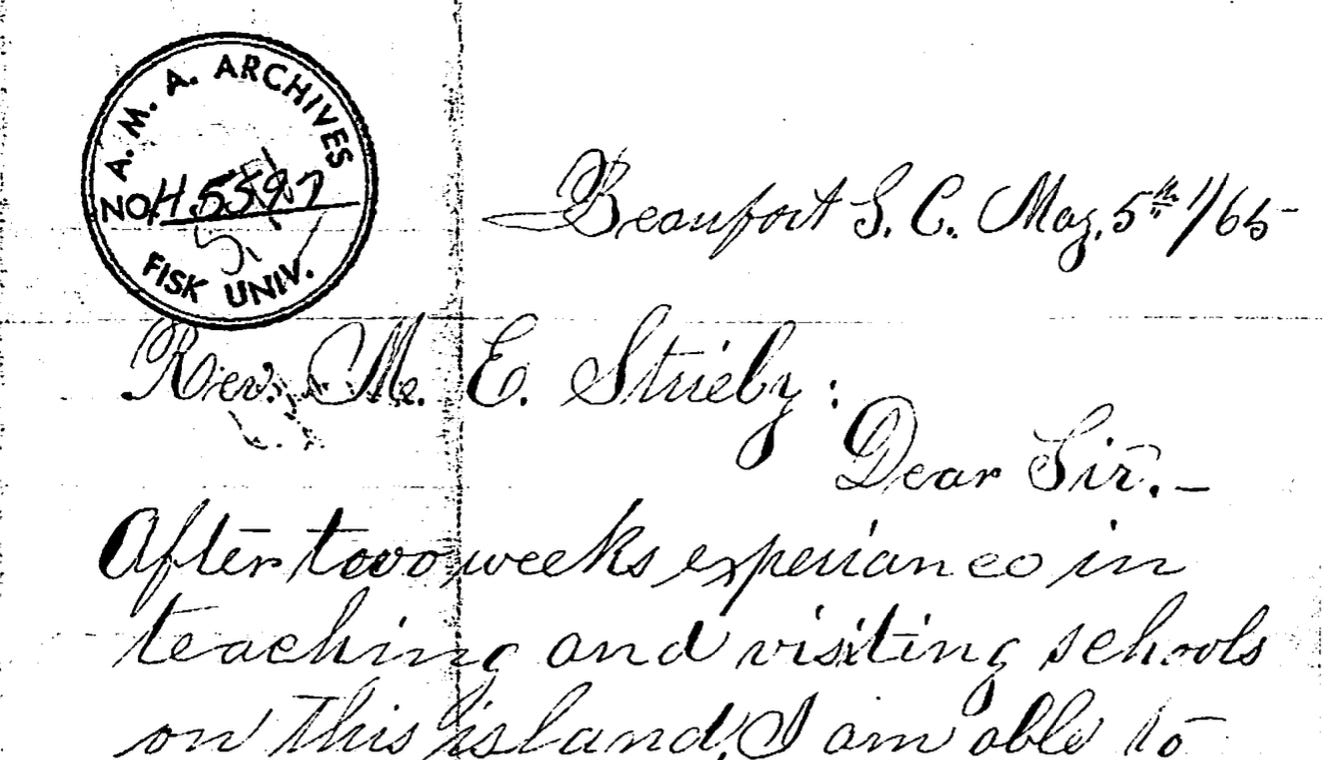 A. M. A. ARCHIVES
NO H 5597
FISK UNIV.
Beaufort S. C. May. 5th 1/65
Rev. M. E. Strieby:
Dear Sir. –
After two weeks experiance in
teaching and visiting schools
on this island, I am able to